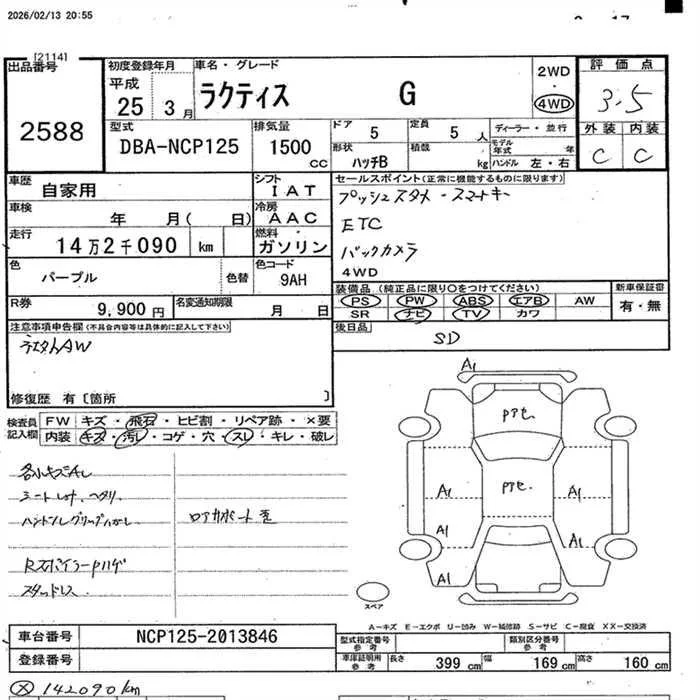 2026/02/13 20:55
[2114]
出品番号
2588
初度登録年月
平成
25 3月
車名・グレード
ラクティス G
2WD
・
4WD
評価点
3.5
外装 内装
C C
型式
DBA-NCP125
排気量
1500 cc
ドア 5
定員 5 人
形状 ハッチB
積載 kg
ディーラー・並行
モデル年式 年
ハンドル 左・右
車歴
自家用
シフト
IAT
車検
年 月( 日)
冷房
AAC
走行
14万2千090 km
燃料
ガソリン
色
パープル
色替
色コード
9AH
R券
9,900円
名変通知期限
月 日
セールスポイント(正常に機能するものに限ります)
プッシュスタート・スマートキー
ETC
バックカメラ
4WD
装備品(純正品に限り○をつけてください)
新車保証書
PS PW ABS エアB AW
SR ナビ TV カワ
有・無
後日品
SD
注意事項申告欄(不具合内容等は具体的に記入して下さい)
修復歴 有〔箇所 〕
検査員記入欄
FW キズ・飛石・ヒビ割・リペア跡・×要
内装 キズ・汚レ・コゲ・穴・スレ・キレ・破レ
各小キズ凹レ
ハンドルグリップハガレ
Rスポイラーpハゲ
スタッドレス
A1
Pアセ
Pアセ
A1
A1
A1
A1
A1
スペア
A−キズ E−エクボ U−凹み W−補修跡 S−サビ C−腐食 XX−交換済
車台番号
NCP125-2013846
登録番号
型式指定番号
参考
類別区分番号
参考
車庫証明用
参考
長さ 399 cm
幅 169 cm
高さ 160 cm
142090km